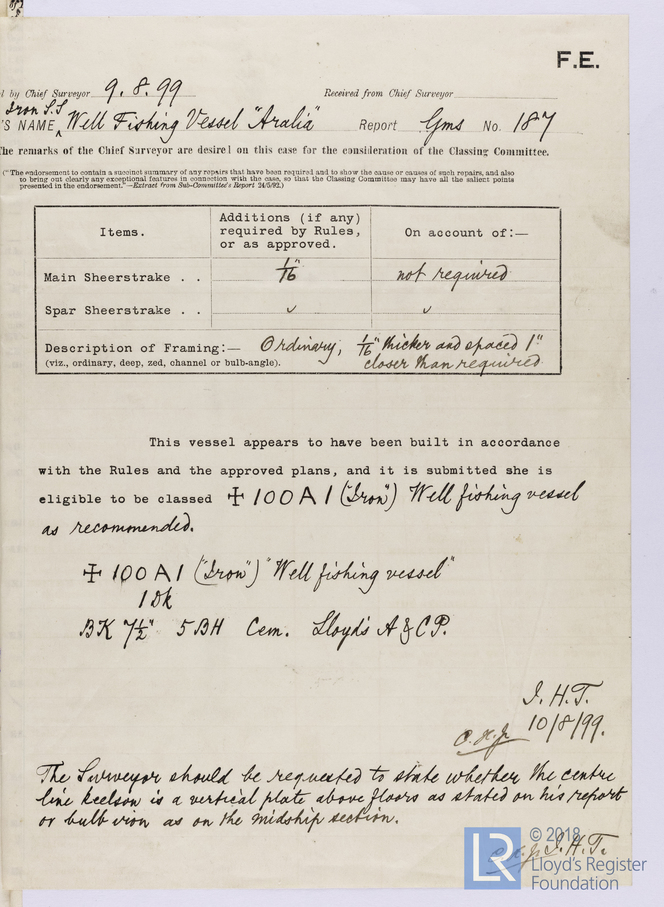 F.E.
by Chief Surveyor 9.8.99 Received from Chief Surveyor
Iron S.S
'S NAME Well Fishing Vessel "Aralia" Report Gms No. 187
The remarks of the Chief Surveyor are desired on this case for the consideration of the Classing Committee.
("The endorsement to contain a succinct summary of any repairs that have been required and to show the cause or causes of such repairs, and also
to bring out clearly any exceptional features in connection with the case, so that the Classing Committee may have all the salient points
presented in the endorsement."—Extract from Sub-Committee's Report 24/5/92.)
Items. Additions (if any) required by Rules, or as approved. On account of:—
Main Sheerstrake . . 1/16" not required
Spar Sheerstrake . . ✓ ✓
Description of Framing:— Ordinary, 1/16" thicker and spaced 1"
(viz., ordinary, deep, zed, channel or bulb-angle). closer than required
This vessel appears to have been built in accordance
with the Rules and the approved plans, and it is submitted she is
eligible to be classed ✠ 100 A 1 ("Iron") Well fishing vessel
as recommended.
✠ 100 A 1 ("Iron") "Well fishing vessel"
1 Dk
BK 7½" 5 BH Cem. Lloyd's A & CP.
J.H.T.
10/8/99.
The Surveyor should be requested to state whether the centre
line keelson is a vertical plate above floors as stated on his report
or bulb iron as on the midship section.
J.H.T.
LR © 2018
Lloyd's Register
Foundation